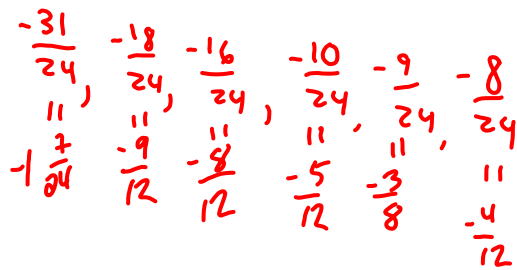 -31/24, -18/24, -16/24, -10/24, -9/24, -8/24
= = = = = =
-1 7/24 -9/12 -8/12 -5/12 -3/8 -4/12